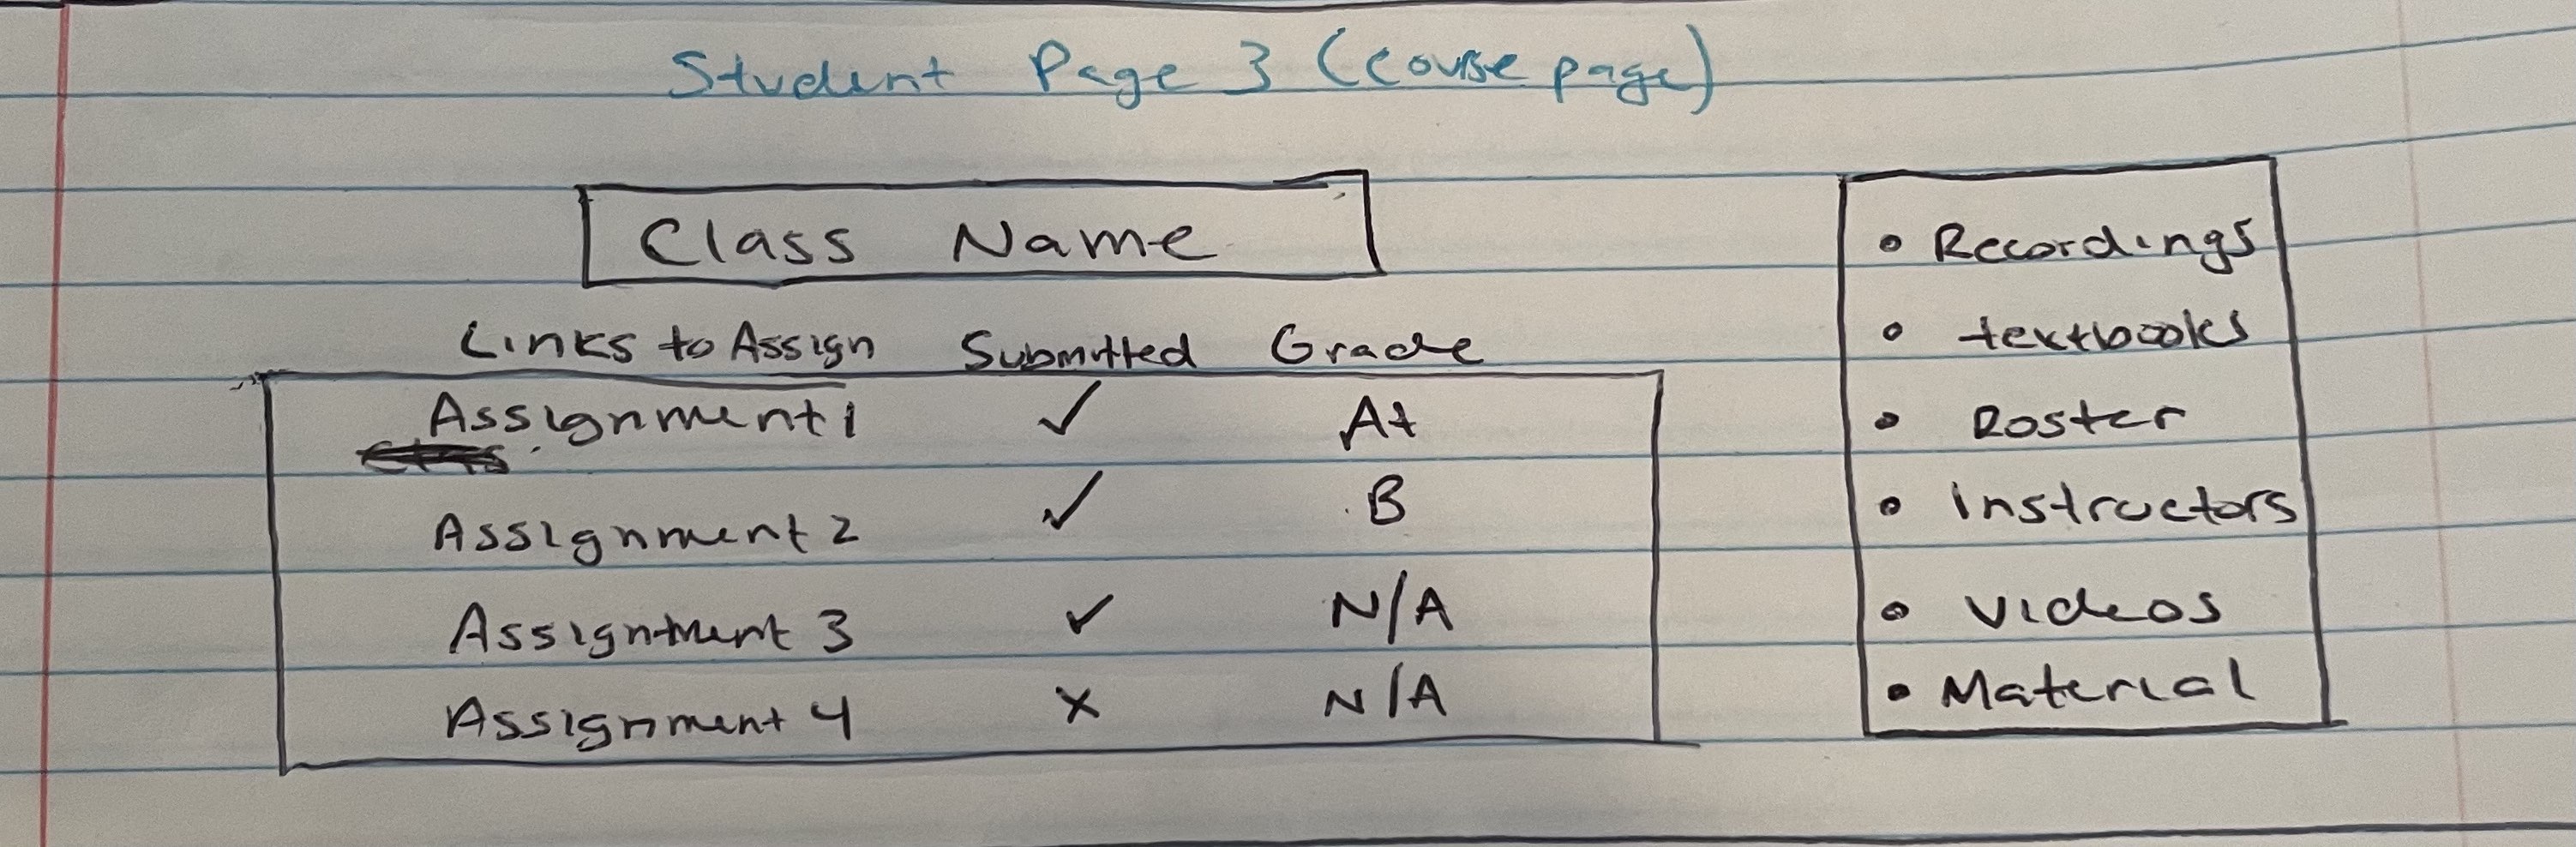 Student Page 3 (course page)
Class Name
Links to Assign Submitted Grade
Assignment 1 ✓ A+
Assignment 2 ✓ B
Assignment 3 ✓ N/A
Assignment 4 X N/A
• Recordings
• textbooks
• Roster
• Instructors
• Videos
• Material